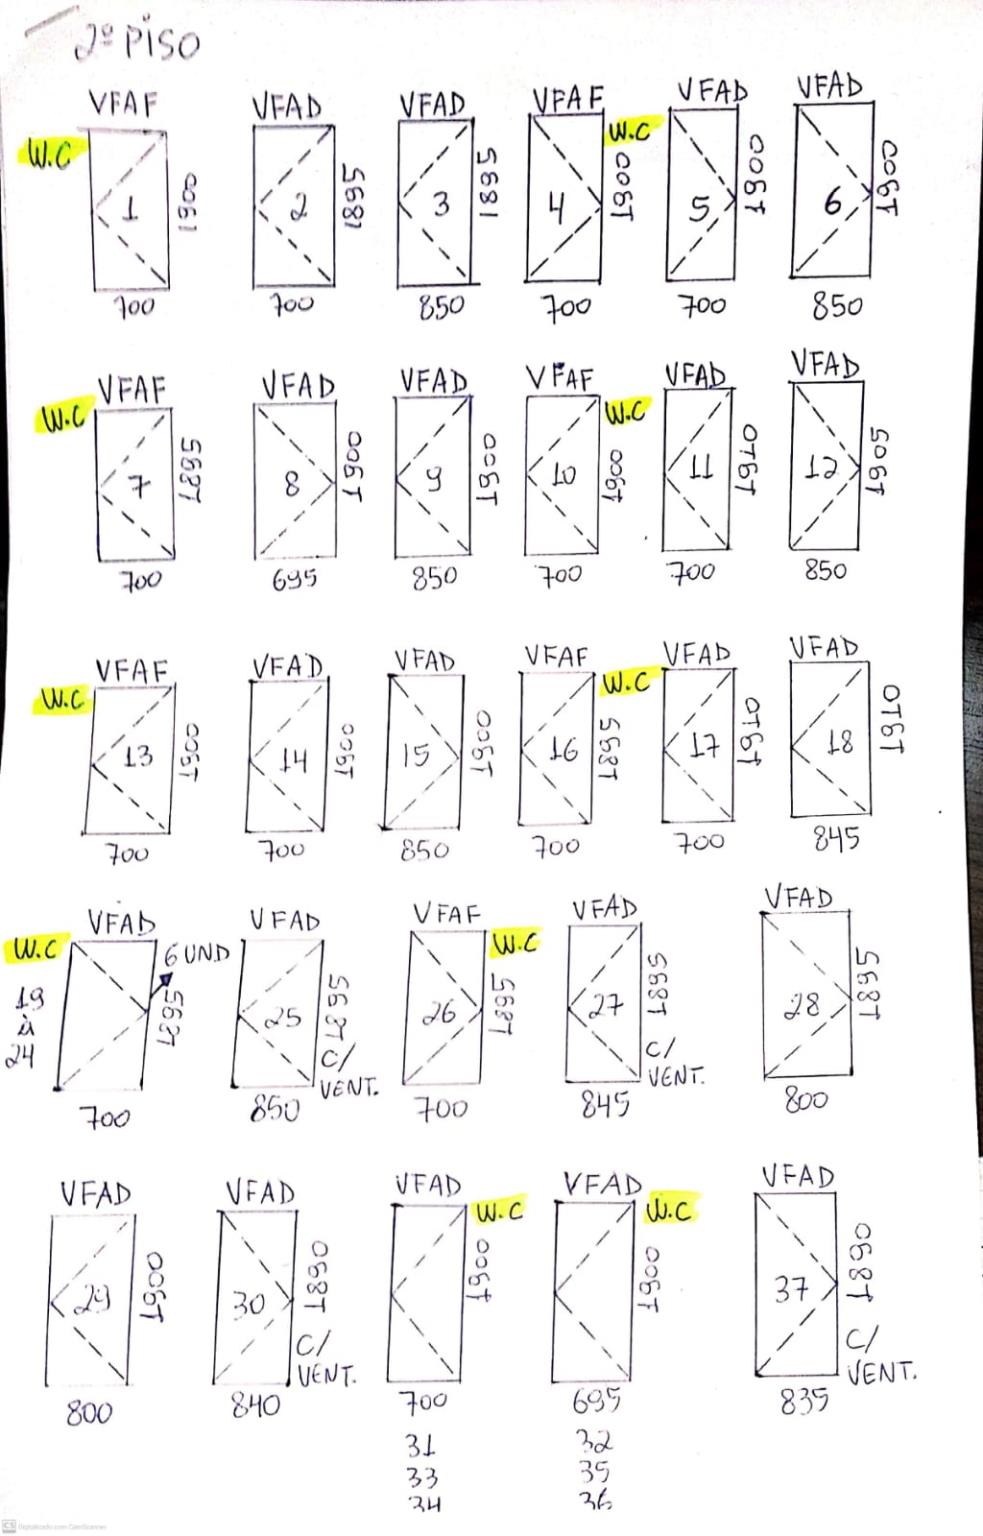 2º PISO
VFAF VFAD VFAD VFAF VFAD VFAD
W.C W.C
1 2 3 4 5 6
1900 1895 1895 1900 1900 1900
700 700 850 700 700 850
VFAF VFAD VFAD VFAF VFAD VFAD
W.C W.C
7 8 9 10 11 12
1895 1900 1900 1900 1910 1905
700 695 850 700 700 850
VFAF VFAD VFAD VFAF VFAD VFAD
W.C W.C
13 14 15 16 17 18
1900 1900 1900 1895 1910 1910
700 700 850 700 700 845
VFAD VFAD VFAF VFAD VFAD
W.C 6 UND W.C
19 à 24 25 26 27 28
1895 1895 1895 1895 1895
C/ VENT. C/ VENT.
700 850 700 845 800
VFAD VFAD VFAD VFAD VFAD
W.C W.C
29 30 37
1900 1890 1900 1900 1890
C/ VENT. C/ VENT.
800 840 700 695 835
31 32
33 35
34 36
CS Digitalizado com CamScanner